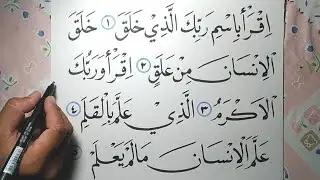 اِقْرَأْ بِاسْمِ رَبِّكَ الَّذِيْ خَلَقَ ١ خَلَقَ
الْاِنْسَانَ مِنْ عَلَقٍ ٢ اِقْرَأْ وَرَبُّكَ
الْاَكْرَمُ ٣ الَّذِيْ عَلَّمَ بِالْقَلَمِ ٤
عَلَّمَ الْاِنْسَانَ مَالَمْ يَعْلَمْ